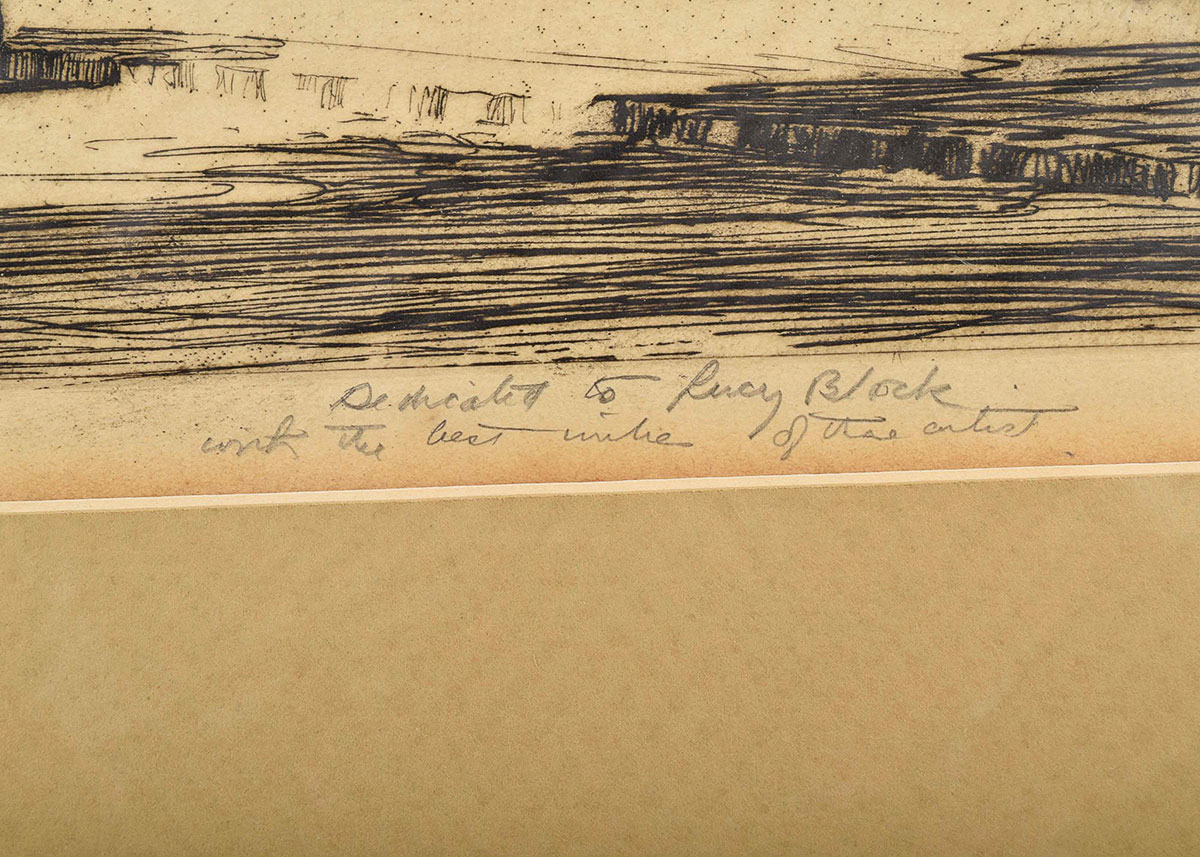 Dedicated to Lucy Block
with the best wishes of the artist